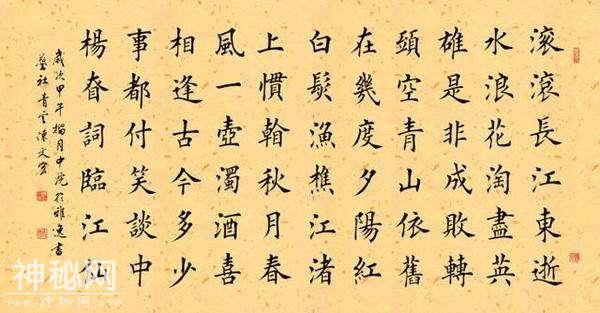 滚滾長江東逝
水浪花淘盡英
雄是非成敗轉
頭空青山依舊
在幾度夕陽紅
白髮漁樵江渚
上慣看秋月春
風一壺濁酒喜
相逢古今多少
事都付笑談中
楊昚詞臨江仙
歲次甲午榴月中浣於雅逸書
藝社青雲陳文
神秘网